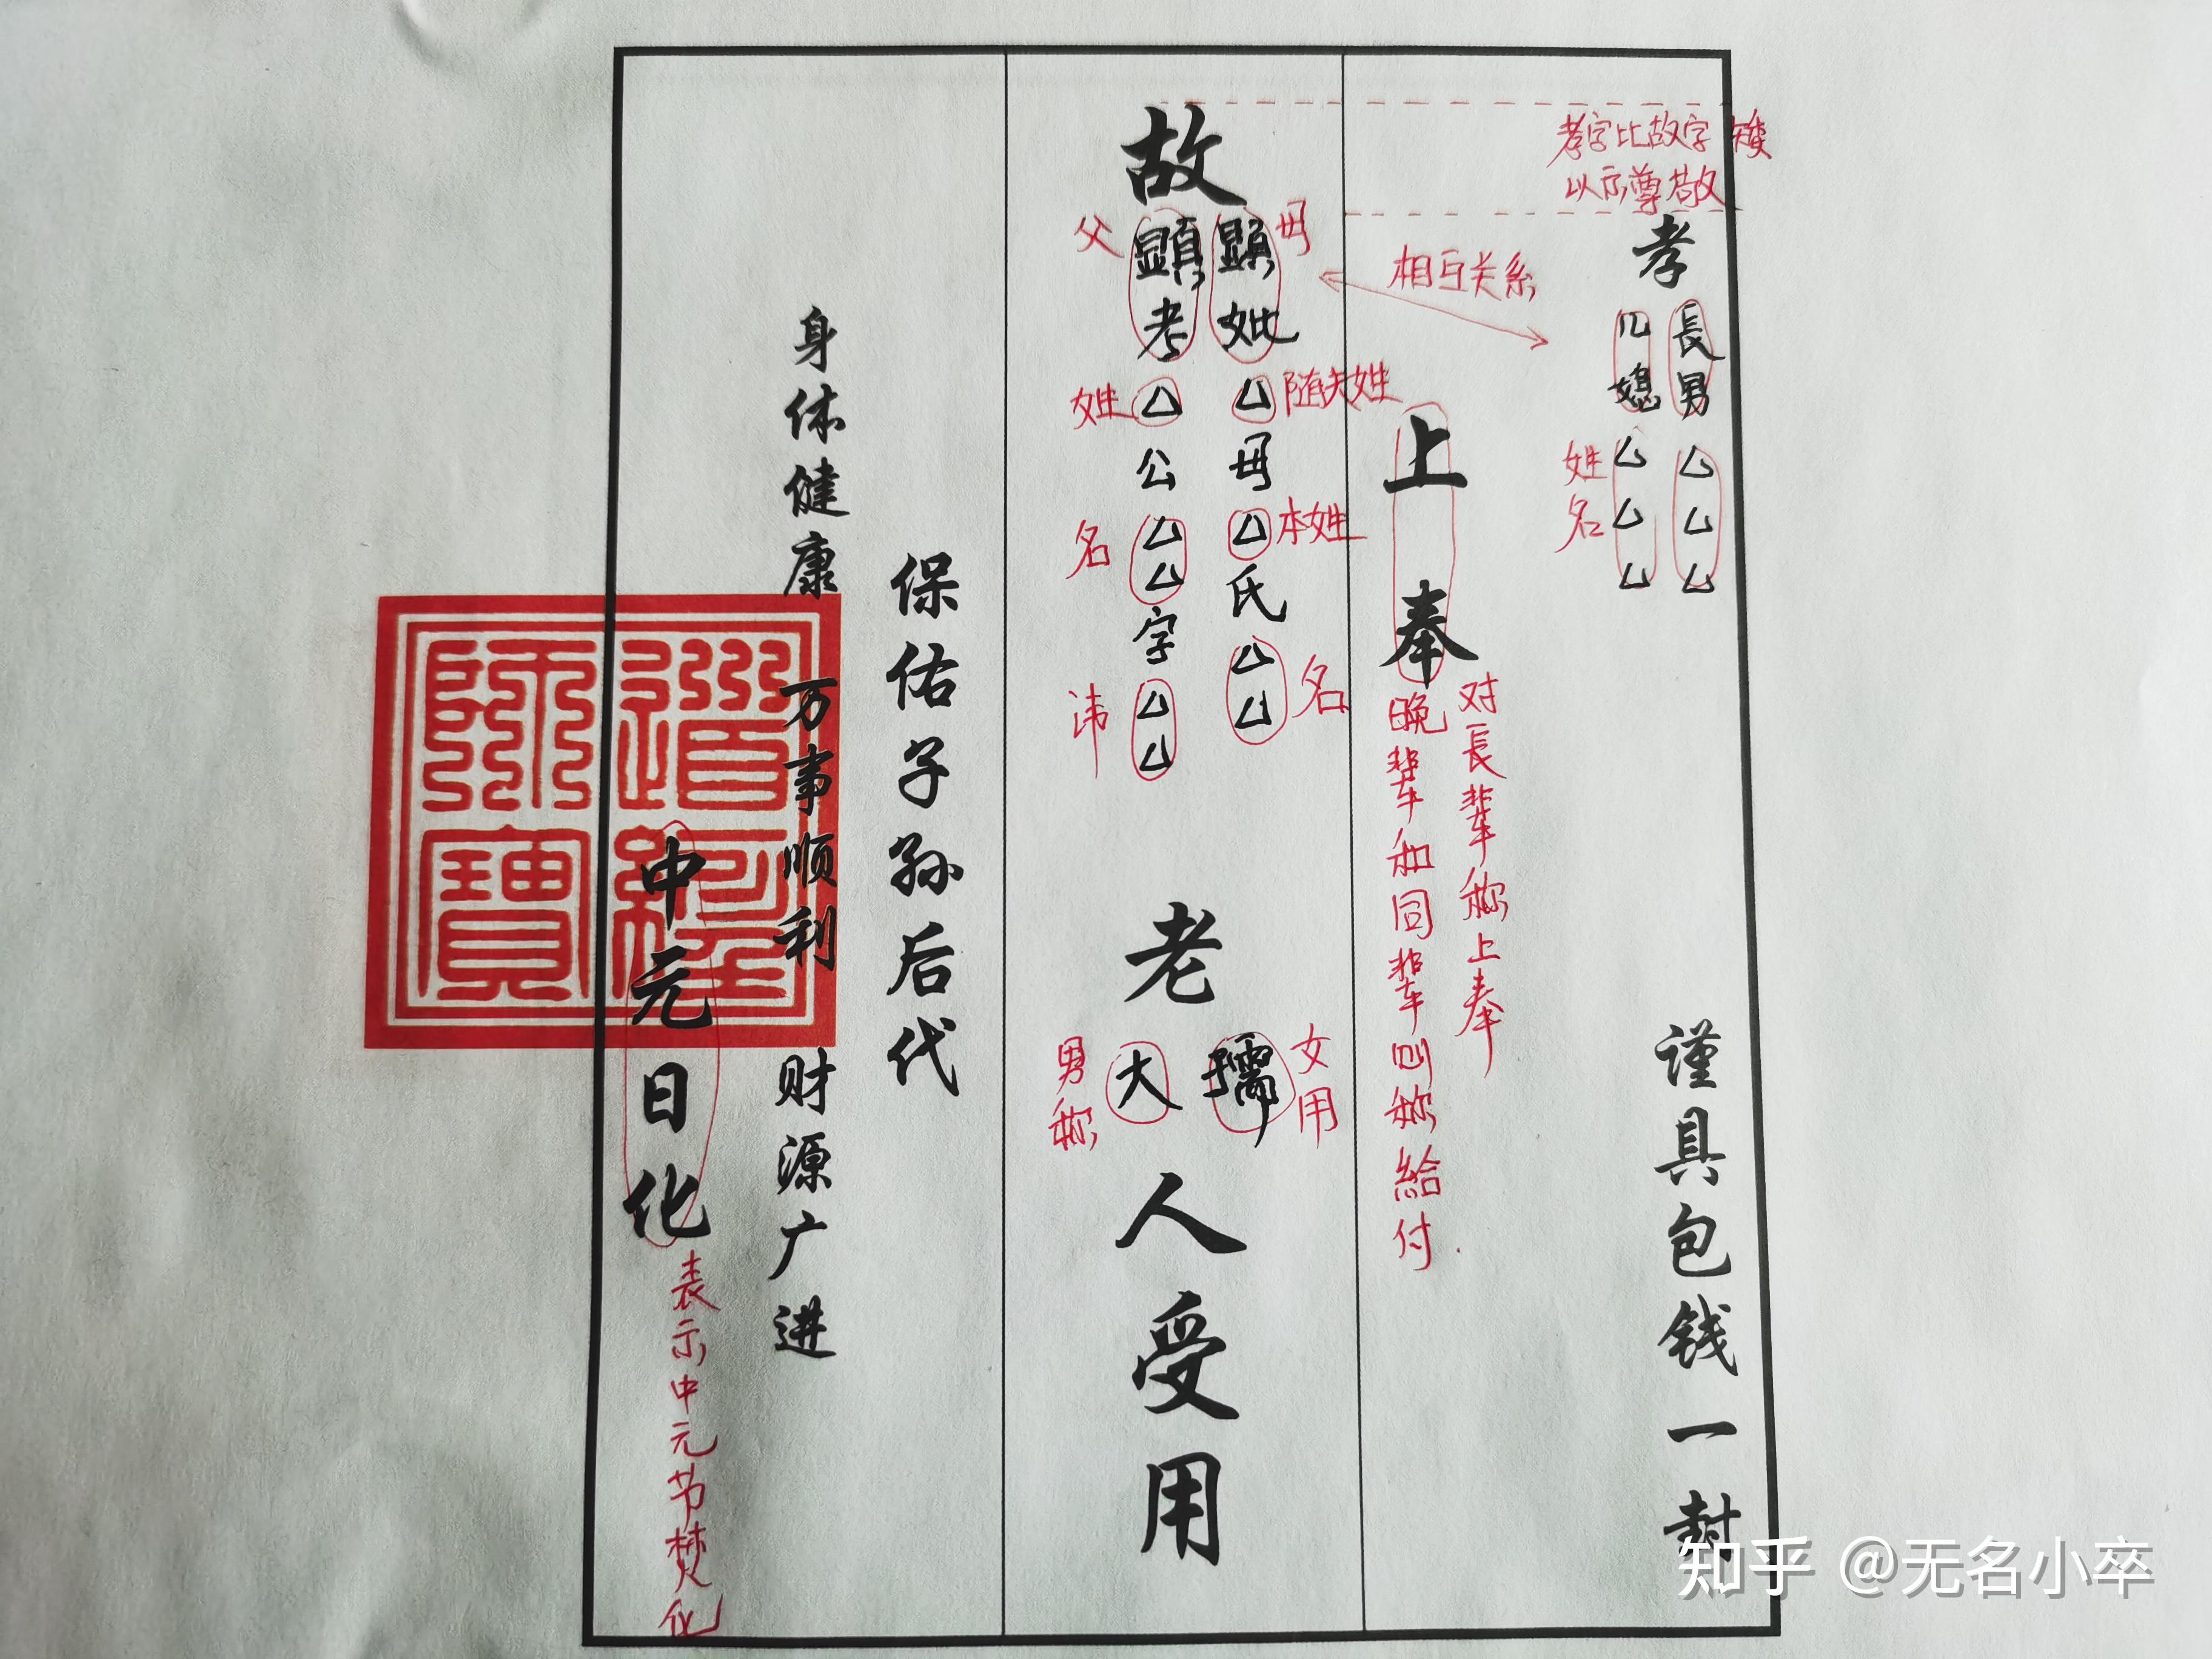 孝字比故字矮
以示尊敬
孝
長男
儿媳
厶厶厶
厶厶厶
姓名
谨具包钱一封
相互关系
上奉
对長辈称上奉
晚辈和同辈则称給付
故
母
顯妣
厶母厶氏厶厶
随夫姓
本姓
名
父
顯考
厶公厶厶字厶厶
姓
名
讳
老
孺
女用
大
男称
人受用
保佑子孙后代
身体健康 万事顺利 财源广进
中元日化
表示中元节焚化
道經師寶
知乎 @无名小卒